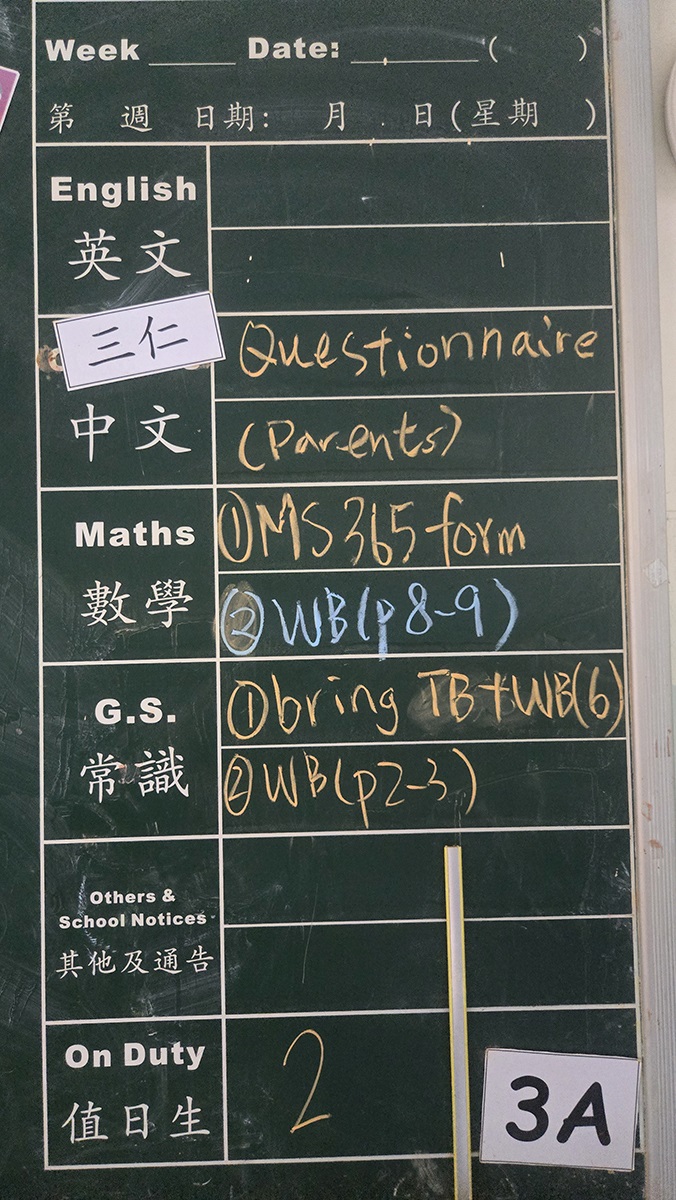 Week _____ Date: _______( )
第 週 日期: 月 日(星期 )
English
英文
三仁
Questionnaire
中文
(Parents)
Maths
①MS365 form
數學
②WB(p8-9)
G.S.
①bring TB+WB(6)
常識
②WB(p2-3)
Others &
School Notices
其他及通告
On Duty
值日生
2
3A